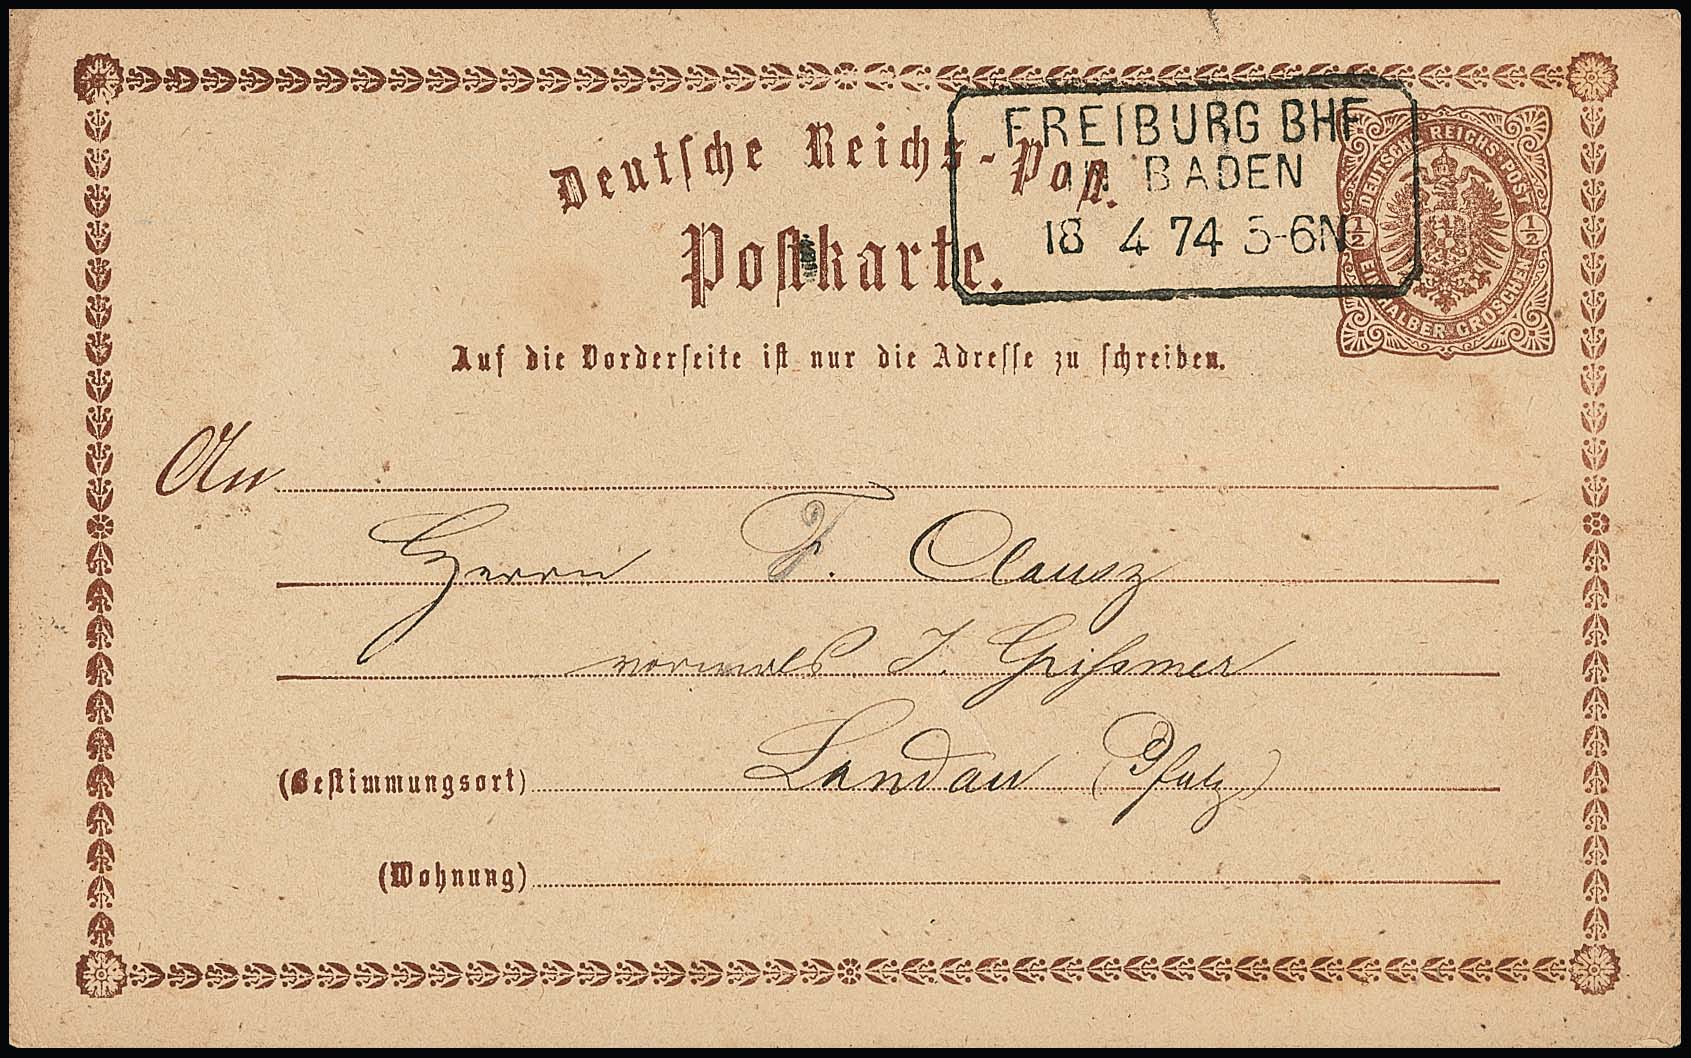 Deutsche Reichs-Post.
FREIBURG BHF
IN BADEN
18 4 74 5-6N
DEUTSCHE REICHS-POST
1/2 1/2
EIN HALBER GROSCHEN
Postkarte.
Auf die Vorderseite ist nur die Adresse zu schreiben.
An
Herrn F. Clausz
vormals J. Grißmer
(Bestimmungsort) Landau (Pfalz)
(Wohnung)